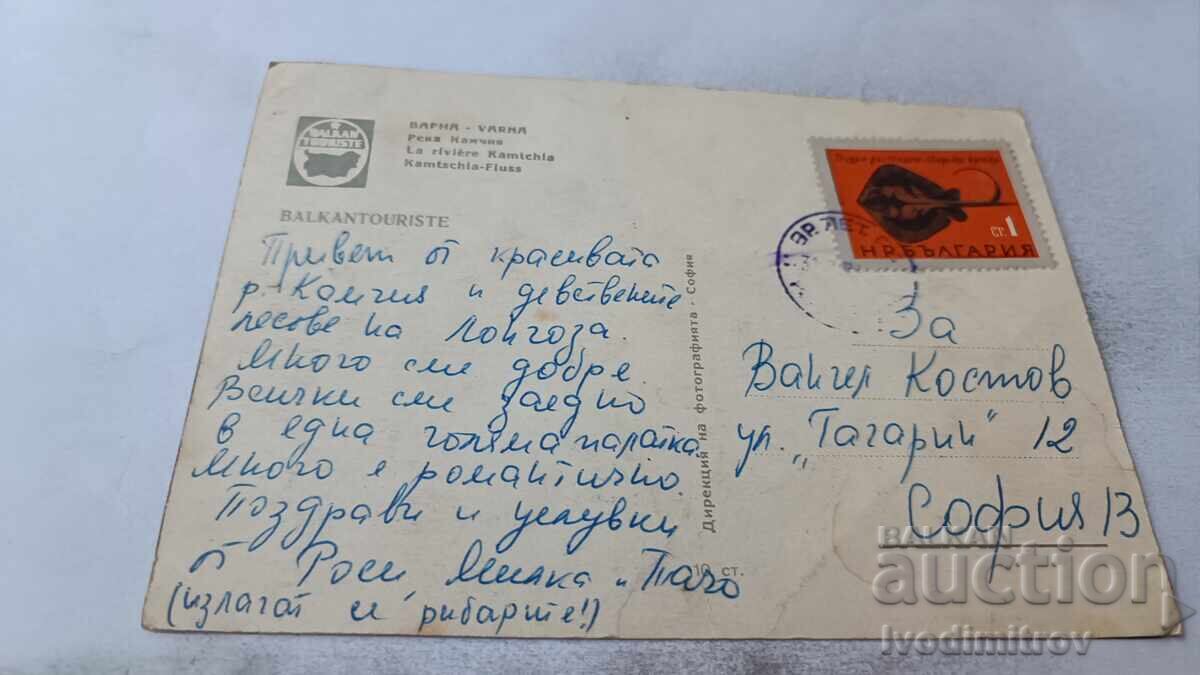 BALKAN
TOURISTE
ВАРНА - VARNA
Река Камчия
La rivière Kamtchia
Kamtschia-Fluss
BALKANTOURISTE
Привет от красивата
р. Камчия и девствените
лесове на Лонгоза.
Много сме добре.
Всички сме заедно
в една голяма палатка.
Много е романтично.
Поздрави и целувки
от Роси Милка и
(излагат и рибарите!)
Дирекция на фотографията - София
10 ст.
СТ. 1
Н.Р. БЪЛГАРИЯ
За
Вангел Костов
ул. "Гагарин" 12
София 13
BALKAN
auction
Ivodimitrov